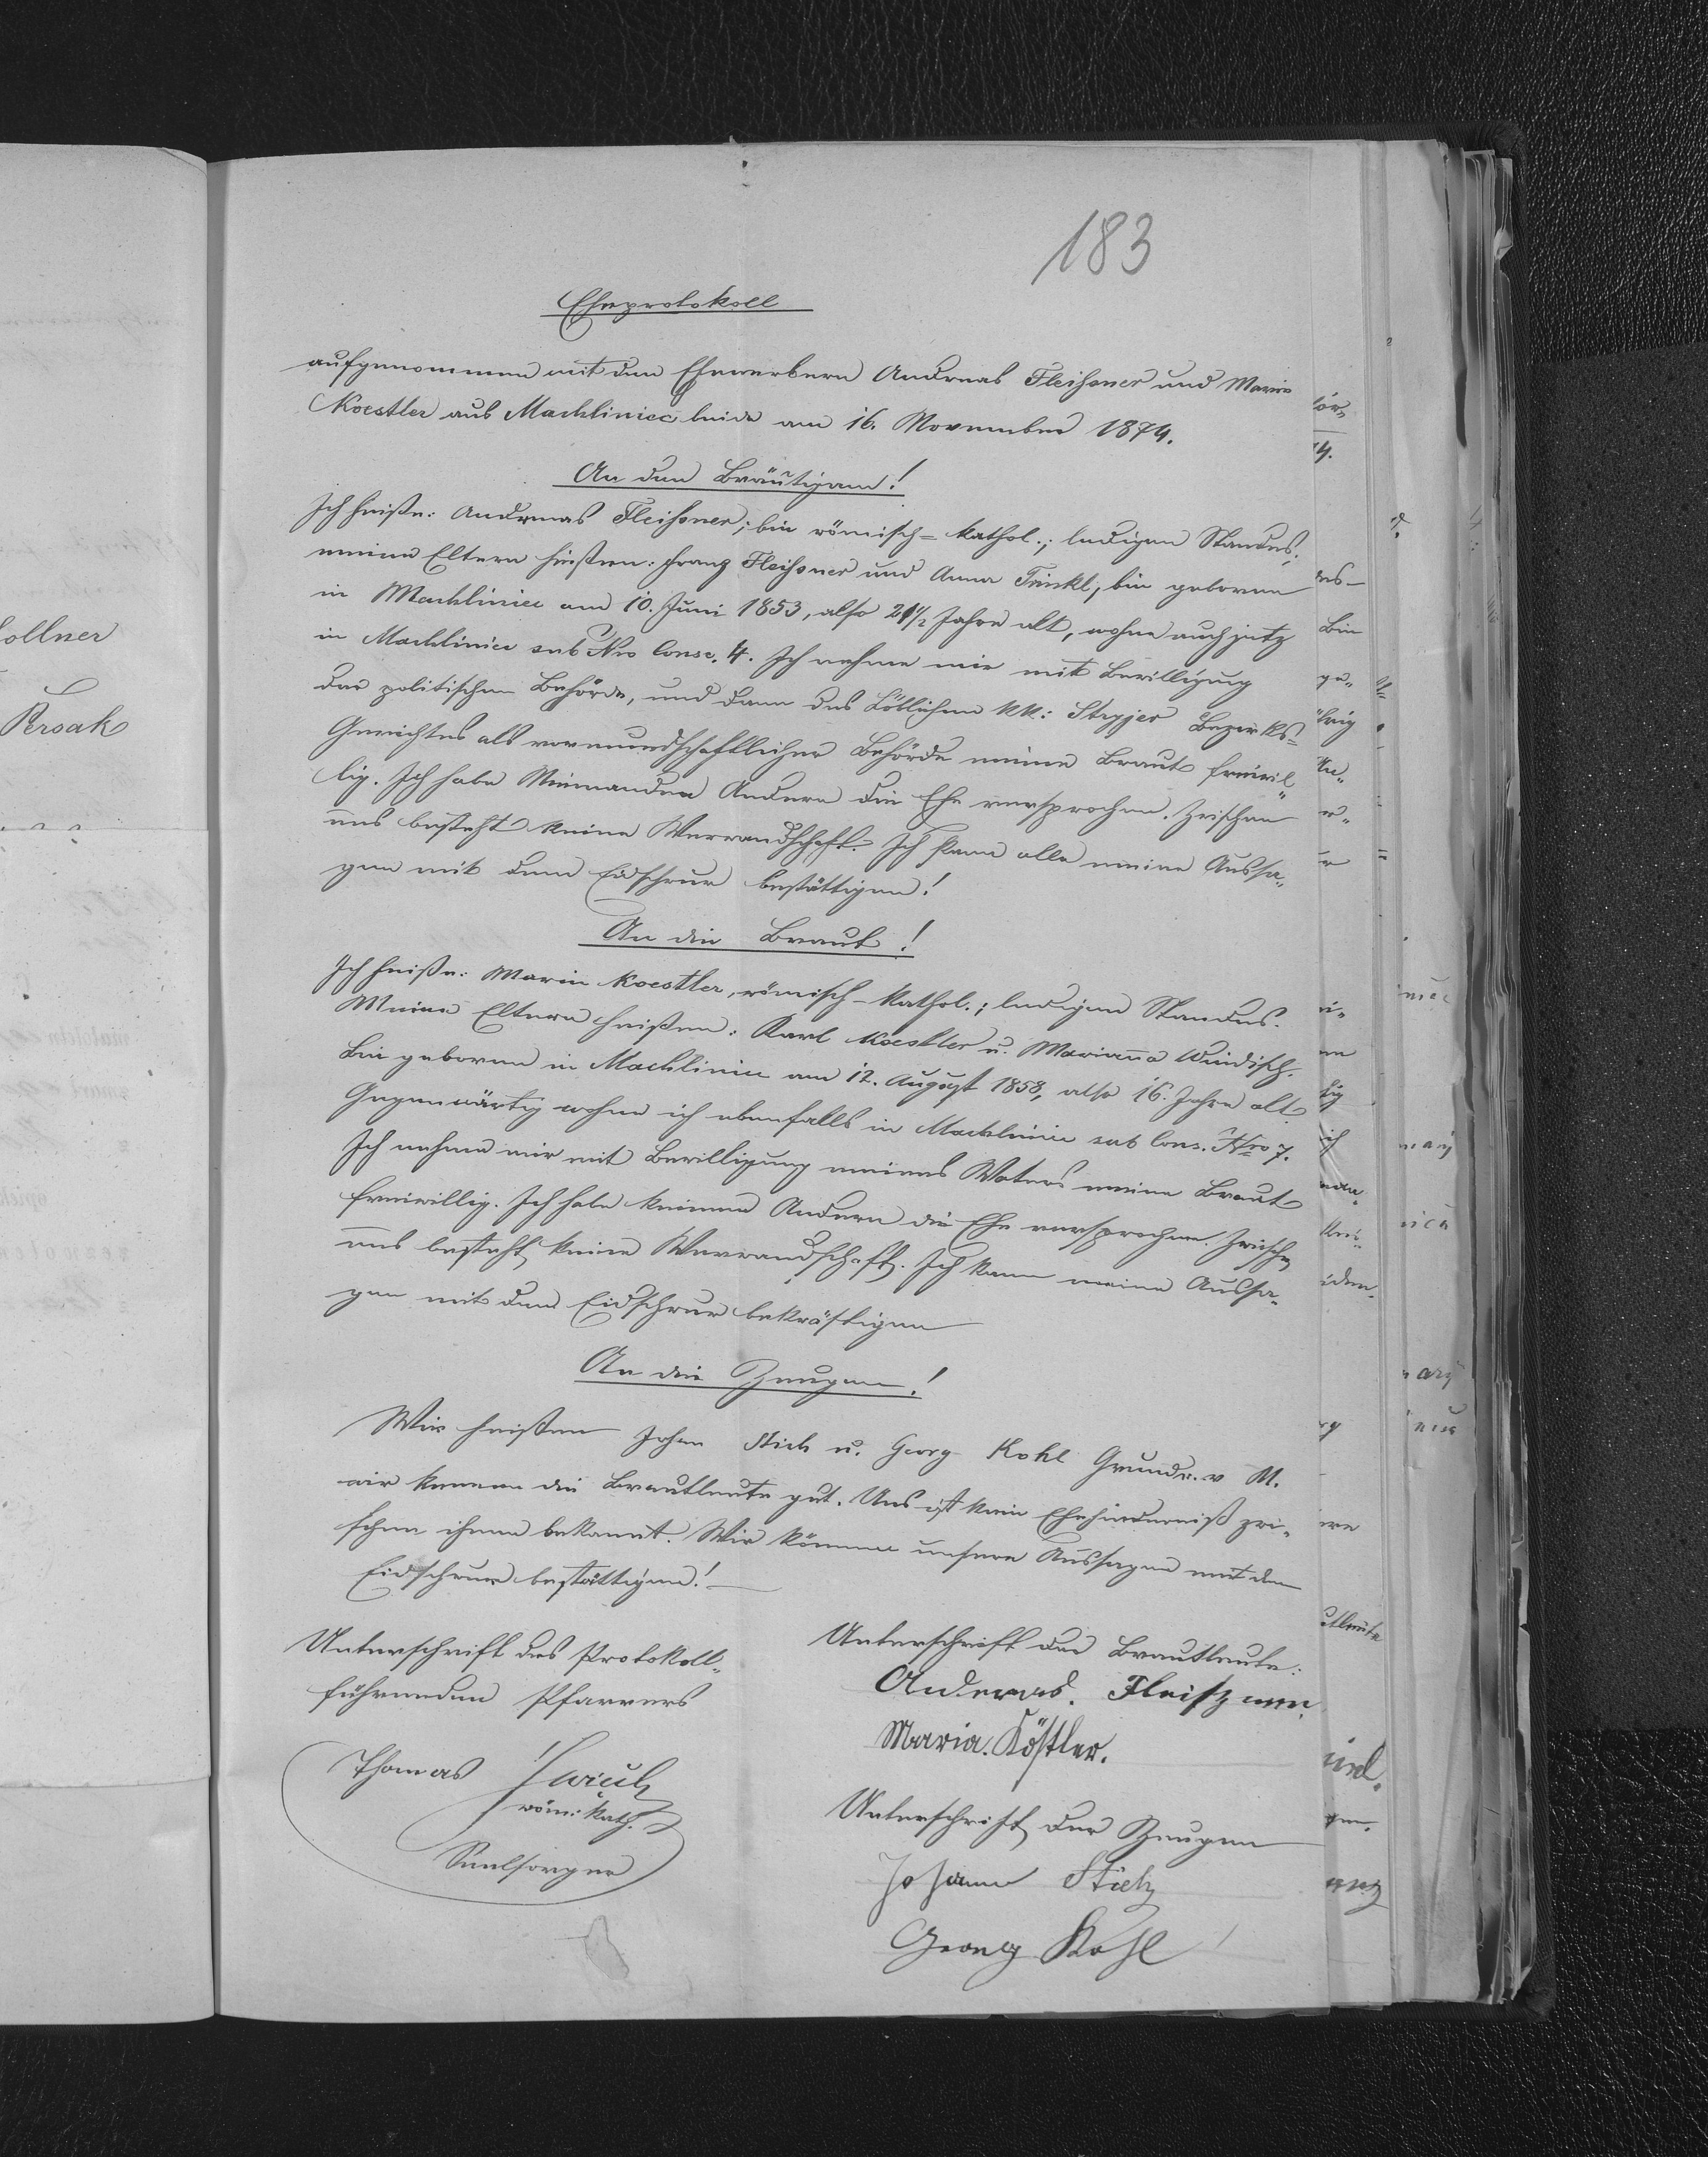 183
Eheprotokoll
aufgenommen mit den Ehewerbern Andreas Fleißner und Marie
Koestler aus Machliniec beide am 16. November 1874.
An den Bräutigam!
Ich heiße: Andreas Fleißner; bin römisch-kathol.; ledigen Standes;
meine Eltern hießen: Franz Fleißner und Anna Trinkl; bin geboren
in Machliniec am 10. Juni 1853, also 21 1/2 Jahre alt, wohne auch jetz
in Machliniec sub Nro Consc. 4. Ich nehme mir mit Bewilligung
der politischen Behörde, und dann des Löblichen kk: Stryjer Bezirks=
Gerichtes als vormundschaftlicher Behörde meine Braut freiwil„
lig. Ich habe Niemanden Andern die Ehe versprochen. Zwischen
uns besteht keine Verwandschaft. Ich kann alle meine Aussa„
gen mit dem Eidschwur bestättigen!
An die Braut!
Ich heiße: Marie Koestler, römisch-kathol.; ledigen Standes.
Meine Eltern heißen: Karl Koestler u. Marianna Windisch.
Bin geboren in Machliniec am 12. August 1858, also 16. Jahre alt
Gegenwärtig wohne ich ebenfalls in Machliniec sub Cons. Nro 7.
Ich nehme mir mit Bewilligung meines Vaters meine Braut
freiwillig. Ich habe keinem Andern die Ehe versprochen. Zwischen
uns besteht keine Verwandschaft. Ich kann meine Aussa„
gen mit dem Eidschwur bekräftigen
An die Zeugen!
Wir heißen Johan Stich u. Georg Kohl Grundr. v M.
wir kennen die Brautleute gut. Uns ist kein Ehehinderniß zwi„
schen ihnen bekannt. Wir können unsere Aussagen mit dem
Eidschwur bestättigen!
Unterschrift des Protokoll„
führenden Pfarrers
Thomas
röm: kath.
Seelsorger
Unterschrift der Brautleute:
Anderas. Fleiszner.
Maria. Köstler.
Unterschrift der Zeugen
Johann Stich
Georg Kohl
ollner
Persak